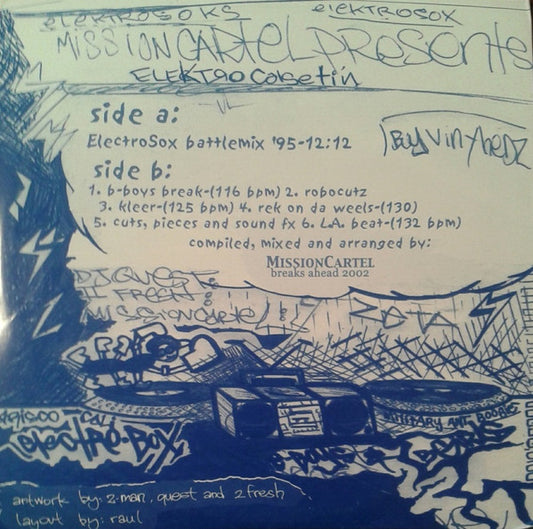 elektrosoks elektrosox
MissionCartel presents
ELEKTRO
side a:
ElectroSox battlemix '95-12:12
side b:
1. b-boys break-(116 bpm) 2. robocutz
3. kleer-(125 bpm) 4. rek on da weels-(130)
5. cuts, pieces and sound fx 6. L.A. beat-(132 bpm)
compiled, mixed and arranged by:
MISSIONCARTEL
breaks ahead 2002
DJ QUEST
FRESH &
MISSIONCARTEL!!
ZETA
electro-boy
MILITARY ANT BOOGIE
artwork by: z-man, quest and 2fresh
layout by: raul